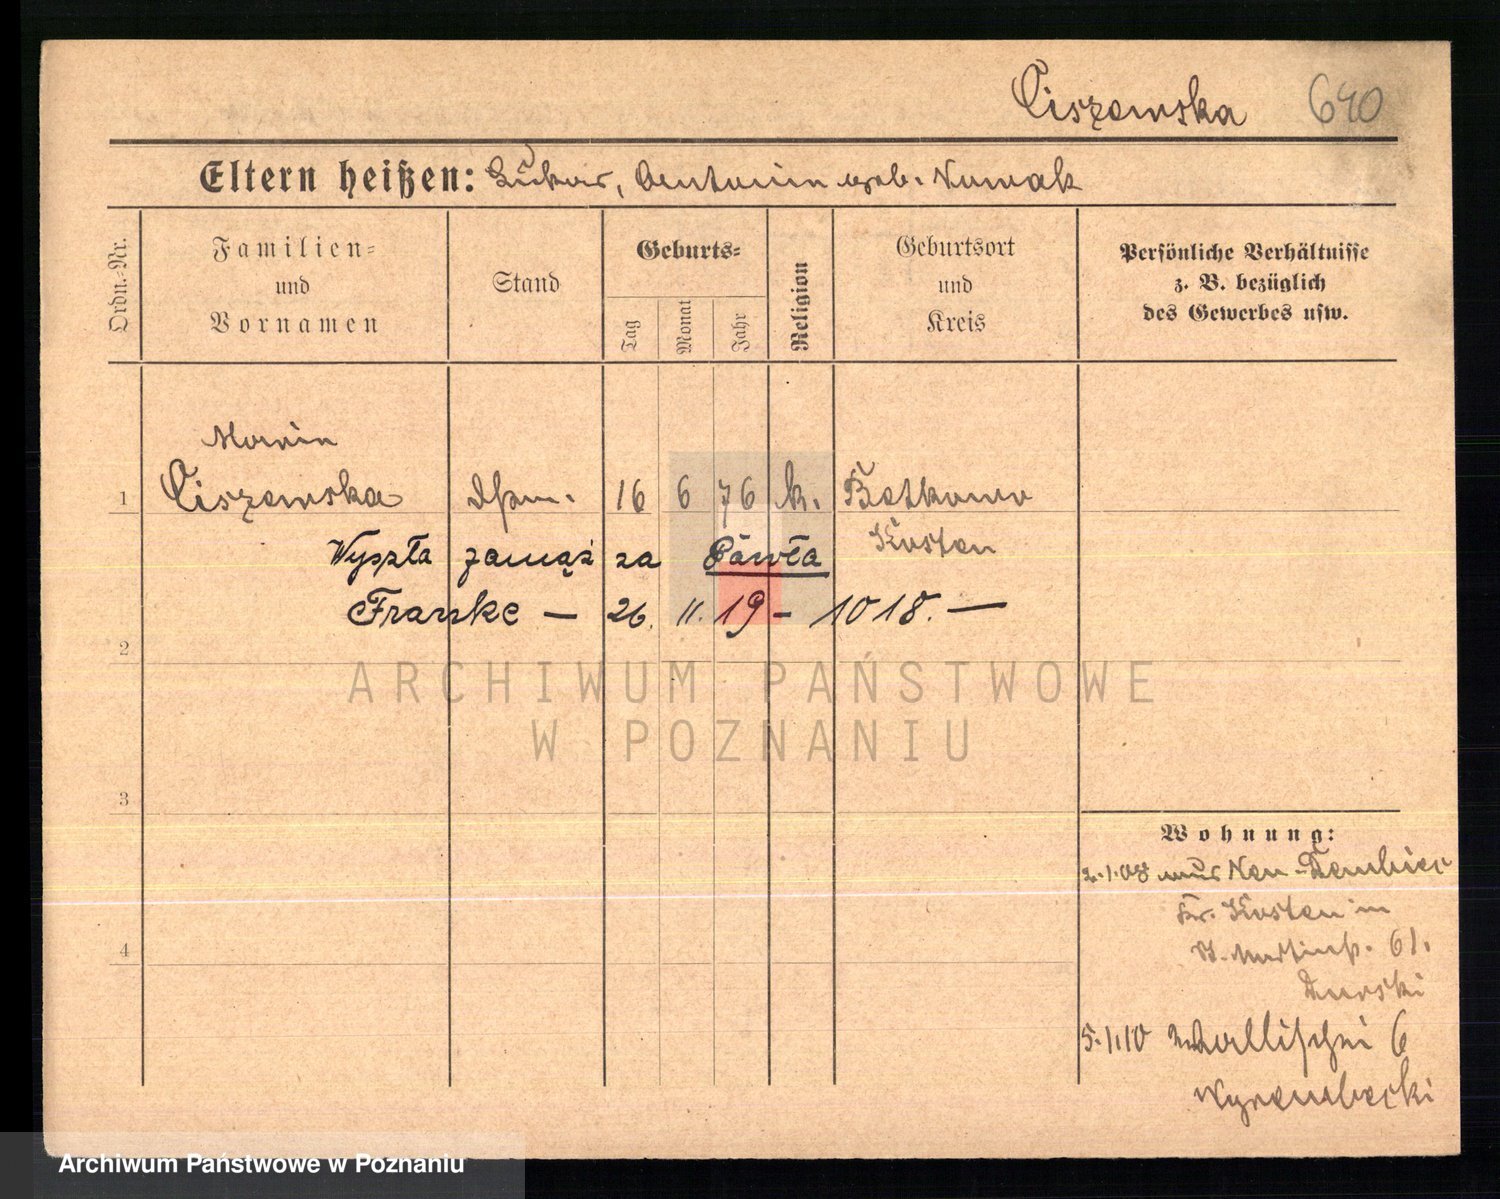 Ciszewska 690
Eltern heißen: Lukas, Antonina geb. Nowak
Ordn.-Nr.
Familien-
und
Vornamen
Stand
Geburts-
Tag
Monat
Jahr
Religion
Geburtsort
und
Kreis
Persönliche Verhältnisse
z. B. bezüglich
des Gewerbes usw.
Maria
1 Ciszewska 16 6 76 k. Betkowo
Kosten
Wyszła zamąż za Pawła
Franke — 26. 11. 19 - 1018. —
2
3
4
ARCHIWUM PAŃSTWOWE
W POZNANIU
Wohnung:
2.1.08 aus Neu-Dembiec
Kr. Kosten in
St. Martinstr. 61.
Durski
5.1.10 Wallischei 6
Wyrembecki
Archiwum Państwowe w Poznaniu